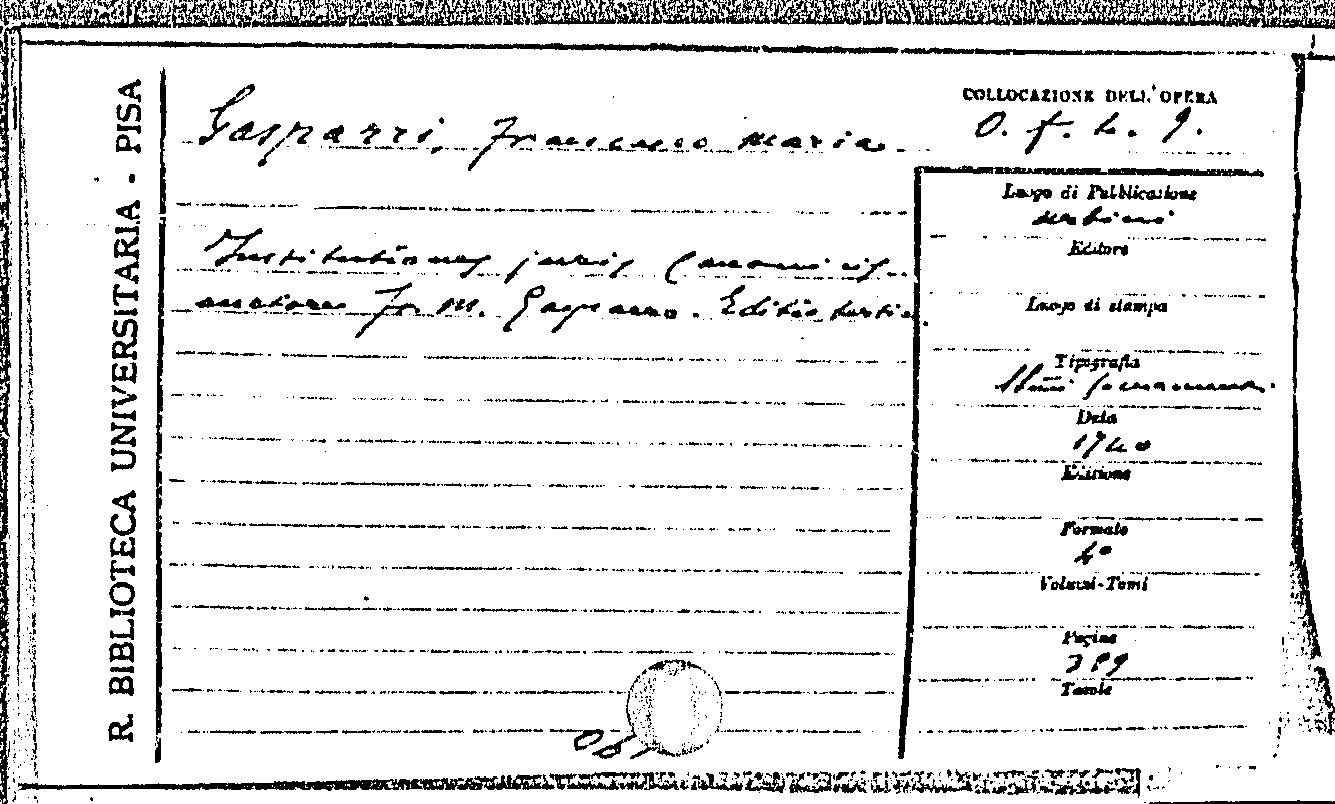 R. BIBLIOTECA UNIVERSITARIA - PISA
Gasparri, Francesco Maria
COLLOCAZIONE DELL'OPERA
O. f. 4. 9.
Institutiones juris Canonici
auctore Fr. M. Gasparro. Editio tertia.
Luogo di Pubblicazione
Urbini
Editore
Luogo di stampa
Tipografia
Data
1740
Edizione
Formato
4º
Volumi-Tomi
Pagine
389
Tavole